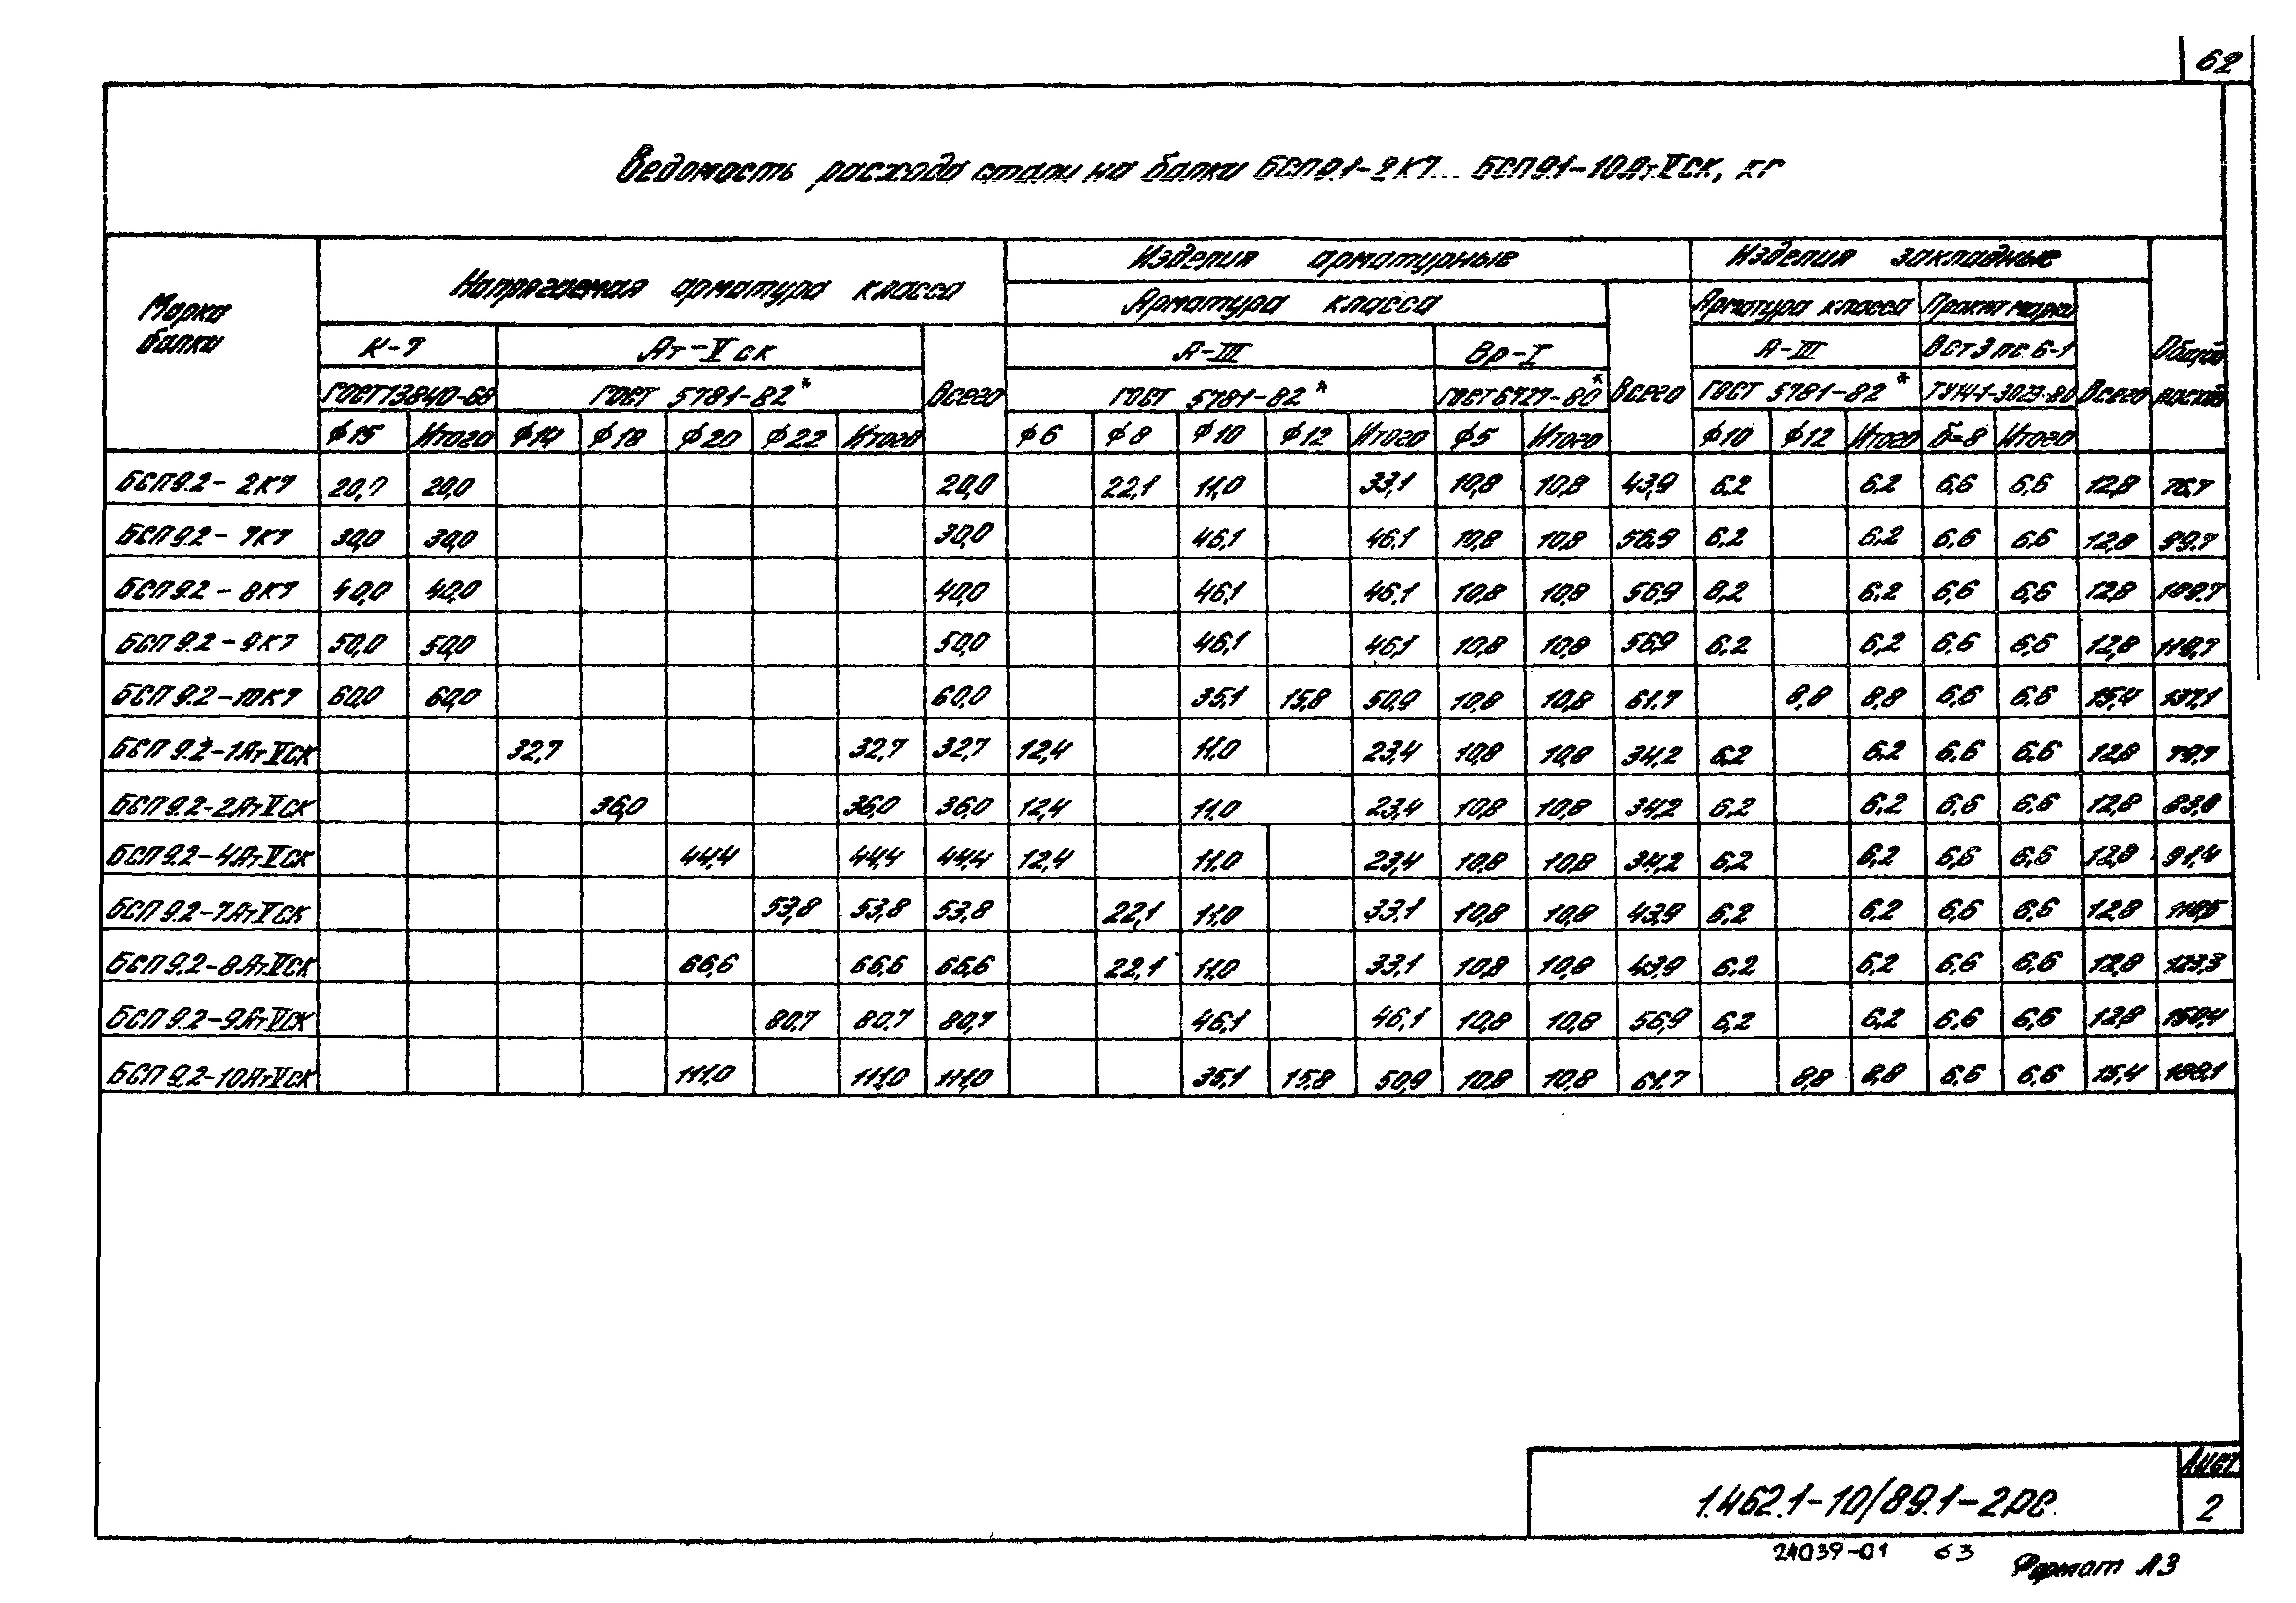 62
Ведомость расхода стали на балки БСП9.1-2К7... БСП9.1-10АтVСК, кг
Марка балки
Напрягаемая арматура класса
Изделия арматурные
Изделия закладные
Общий расход
Арматура класса
Всего
Арматура класса
Прокат марки
Всего
К-7
Ат-Vск
Всего
А-III
Вр-I
А-III
ВСт3пс6-1
ГОСТ13840-68
ГОСТ 5781-82*
ГОСТ 5781-82*
ГОСТ6727-80*
ГОСТ 5781-82*
ТУ14-1-3023-80
ϕ15 Итого ϕ14 ϕ18 ϕ20 ϕ22 Итого ϕ6 ϕ8 ϕ10 ϕ12 Итого ϕ5 Итого ϕ10 ϕ12 Итого б=8 Итого
БСП9.2-2К7 20,0 20,0 20,0 22,1 11,0 33,1 10,8 10,8 43,9 6,2 6,2 6,6 6,6 12,8 76,7
БСП9.2-7К7 30,0 30,0 30,0 46,1 46,1 10,8 10,8 56,9 6,2 6,2 6,6 6,6 12,8 99,7
БСП9.2-8К7 40,0 40,0 40,0 46,1 46,1 10,8 10,8 56,9 6,2 6,2 6,6 6,6 12,8 109,7
БСП9.2-9К7 50,0 50,0 50,0 46,1 46,1 10,8 10,8 56,9 6,2 6,2 6,6 6,6 12,8 119,7
БСП9.2-10К7 60,0 60,0 60,0 35,1 15,8 50,9 10,8 10,8 61,7 8,8 8,8 6,6 6,6 15,4 137,1
БСП9.2-1АтVСК 32,7 32,7 32,7 12,4 11,0 23,4 10,8 10,8 34,2 6,2 6,2 6,6 6,6 12,8 79,7
БСП9.2-2АтVСК 36,0 36,0 36,0 12,4 11,0 23,4 10,8 10,8 34,2 6,2 6,2 6,6 6,6 12,8 83,0
БСП9.2-4АтVСК 44,4 44,4 44,4 12,4 11,0 23,4 10,8 10,8 34,2 6,2 6,2 6,6 6,6 12,8 91,4
БСП9.2-7АтVСК 53,8 53,8 53,8 22,1 11,0 33,1 10,8 10,8 43,9 6,2 6,2 6,6 6,6 12,8 110,5
БСП9.2-8АтVСК 66,6 66,6 66,6 22,1 11,0 33,1 10,8 10,8 43,9 6,2 6,2 6,6 6,6 12,8 123,3
БСП9.2-9АтVСК 80,7 80,7 80,7 46,1 46,1 10,8 10,8 56,9 6,2 6,2 6,6 6,6 12,8 150,4
БСП9.2-10АтVСК 111,0 111,0 111,0 35,1 15,8 50,9 10,8 10,8 61,7 8,8 8,8 6,6 6,6 15,4 188,1
1.462.1-10/89.1-2РС.
Лист
2
24039-01 63
Формат А3